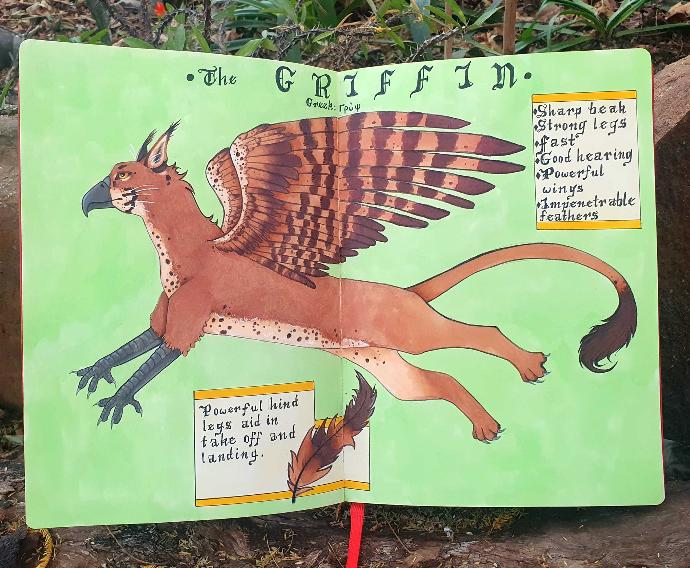 •The GRIFFIN•
Greek: γρύψ
•Sharp beak
•Strong legs
•Fast
•Good hearing
•Powerful
wings
•Impenetrable
feathers
Powerful hind
legs aid in
take off and
landing.